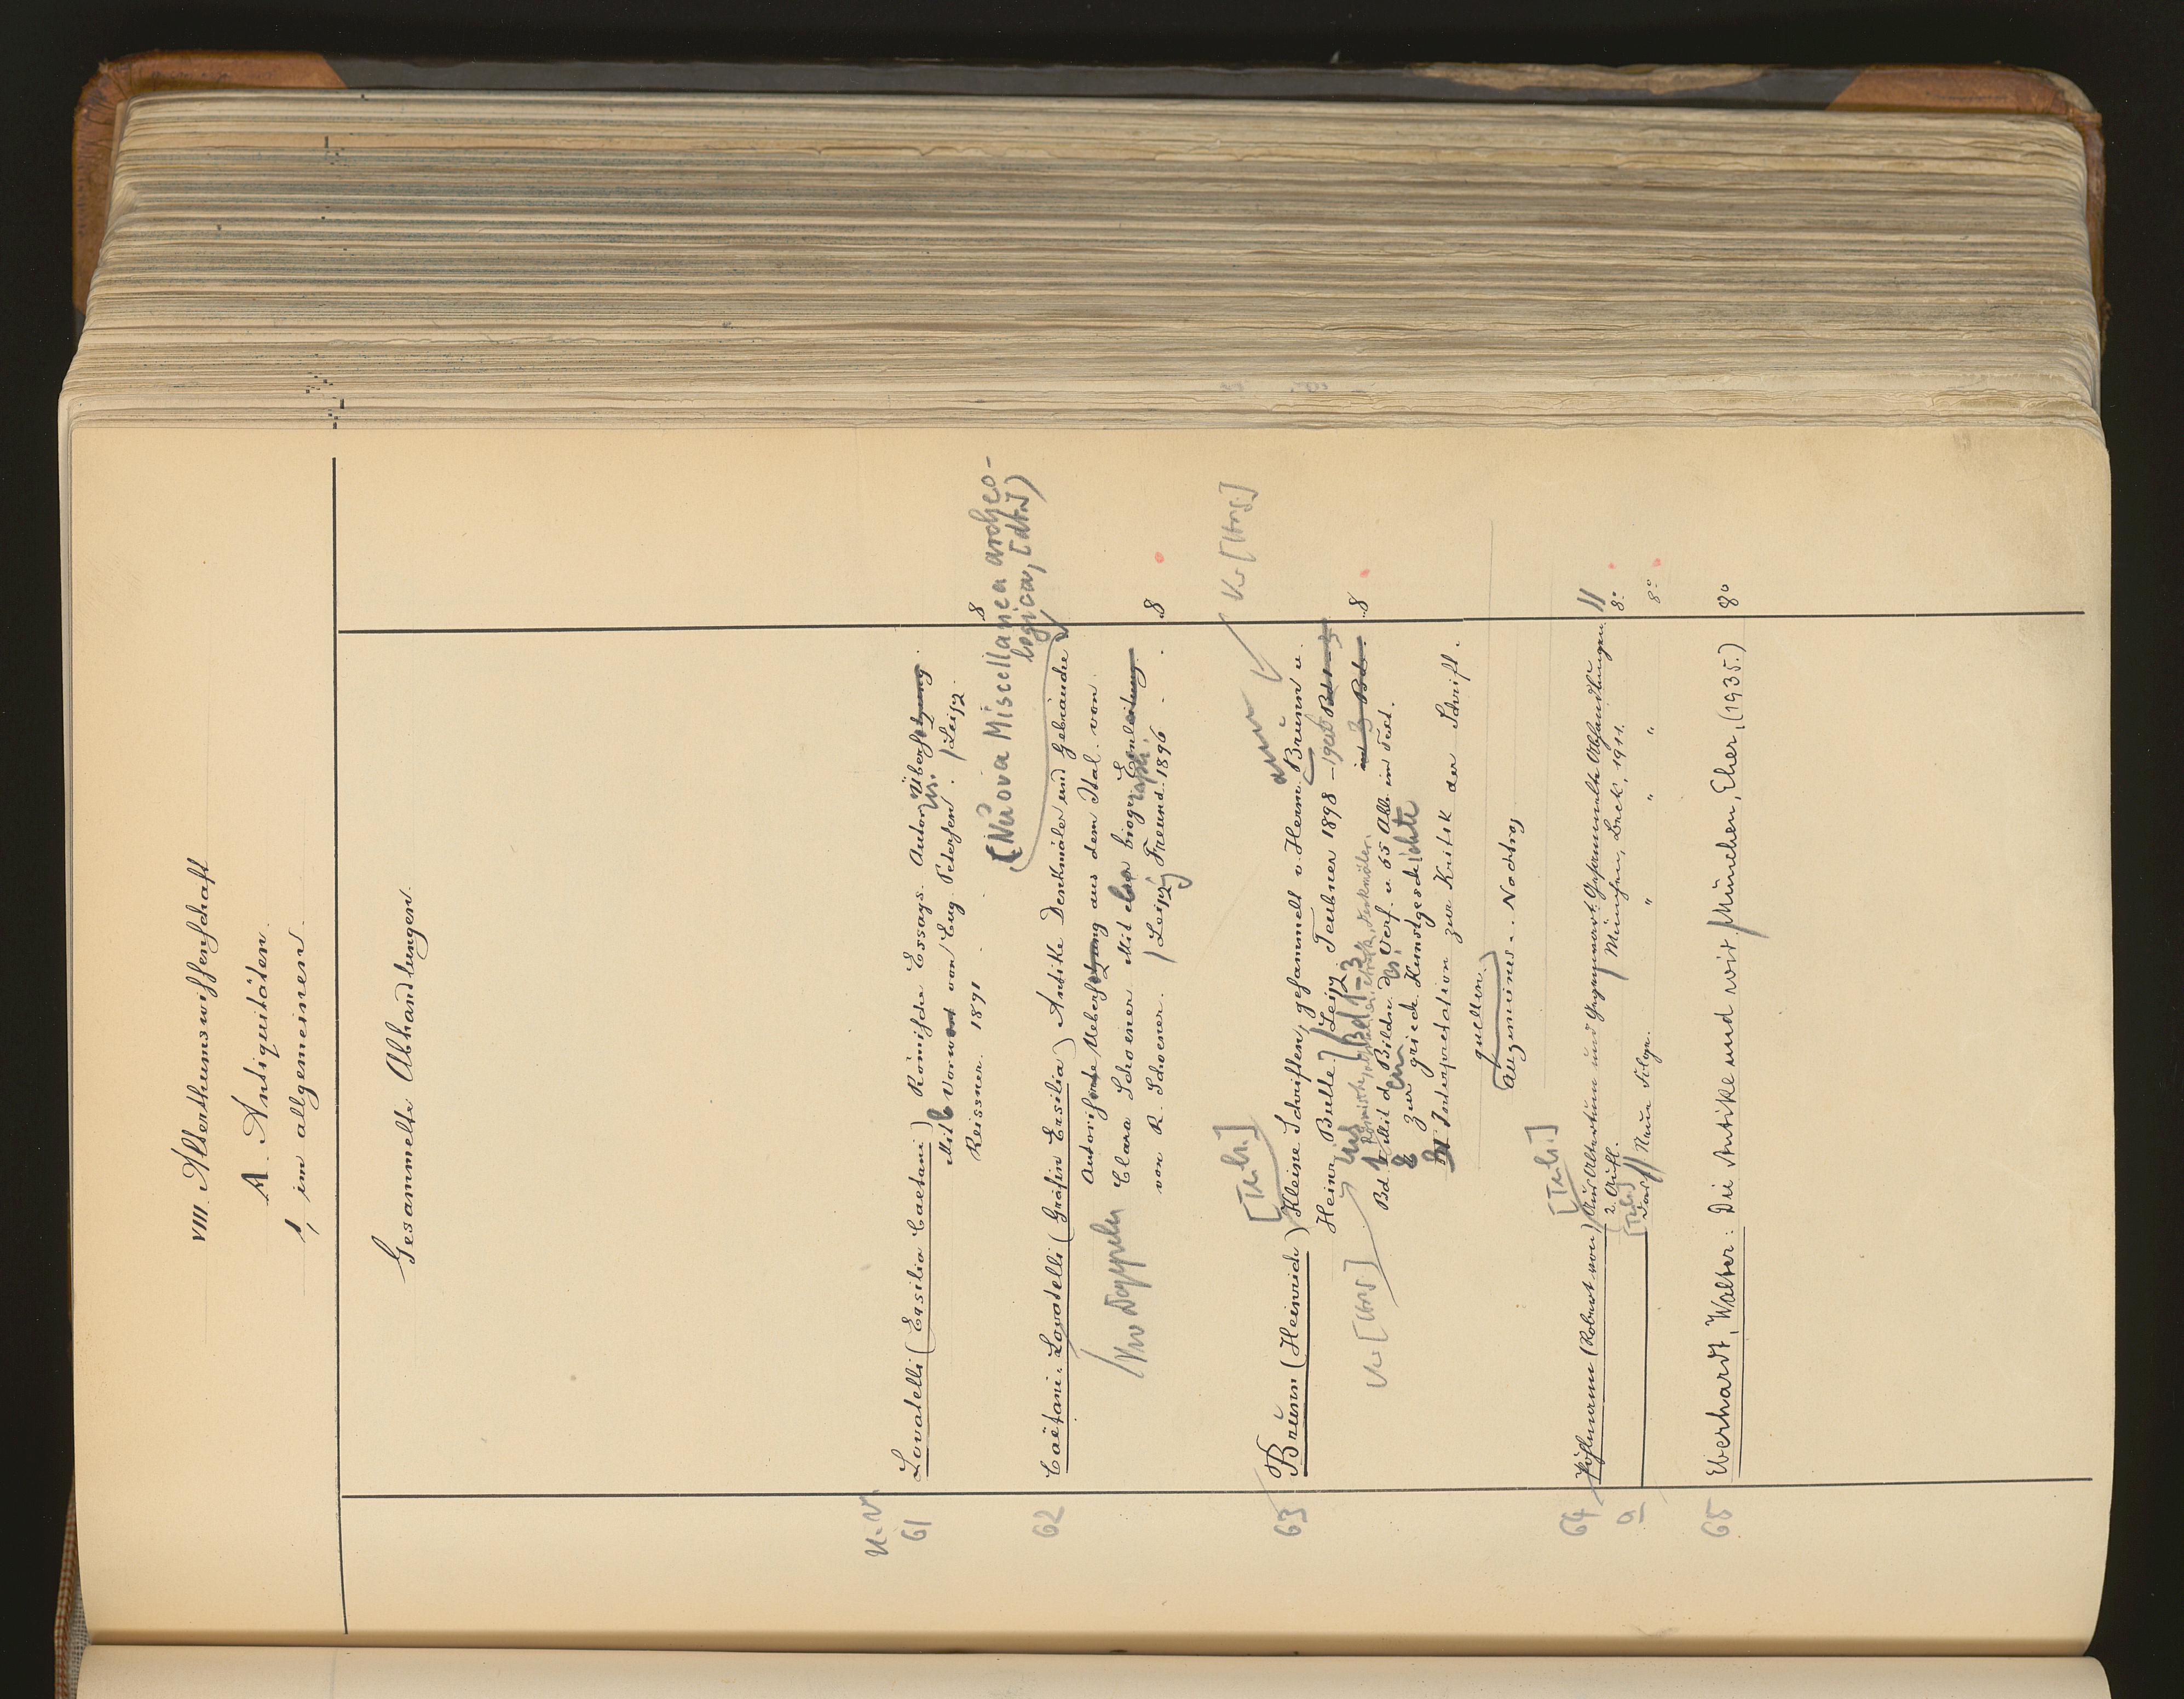 VIII. Alterthumswissenschaft
A. Antiquitäten.
1, im allgemeinen.
Gesammelte Abhandlungen.
U.V.
61 Lovatelli (Ersilia Caetani) Römische Essays. Autor. Übersetzung.
Mit Vorwort von Eug. Petersen. / Leipz.
Reissner. 1891 8
(Nuova Miscellanea archeo-
logica, [dt.])
62 Caëtani-Lovatelli (Gräfin Ersilia) Antike Denkmäler und Gebräuche
Autorisierte Uebersetzung aus dem Ital. von
Clara Schoener Mit biogr. Einleitung
von R. Schoener. / Leipzg Freund. 1896 8
63 Brunn (Heinrich) [Teils.] Kleine Schriften, gesammelt v. Herm. Brunn u.
Heinr. Bulle. / Leipz. Teubner 1898 - 8
Bd 1-3
Römische, Denkmäler
Bd. 1 Mit d. Bildn. des Verf. u. 65 Abb. im Text.
2 zur griech. Kunstgeschichte
3 Interpretation zur Kritik der Schrift-
quellen.
Allgemeines. Nachtrag
64 Pöhlmann (Robert von) Aus Altertum und Gegenwart. Gesammelte Abhandlungen. //
2. Aufl. / München, Beck, 1911. 8°
a Dass. // Neue Folge. " " " 8°
65 Eberhardt, Walter: Die Antike und wir / München, Eher, (1935.) 8°